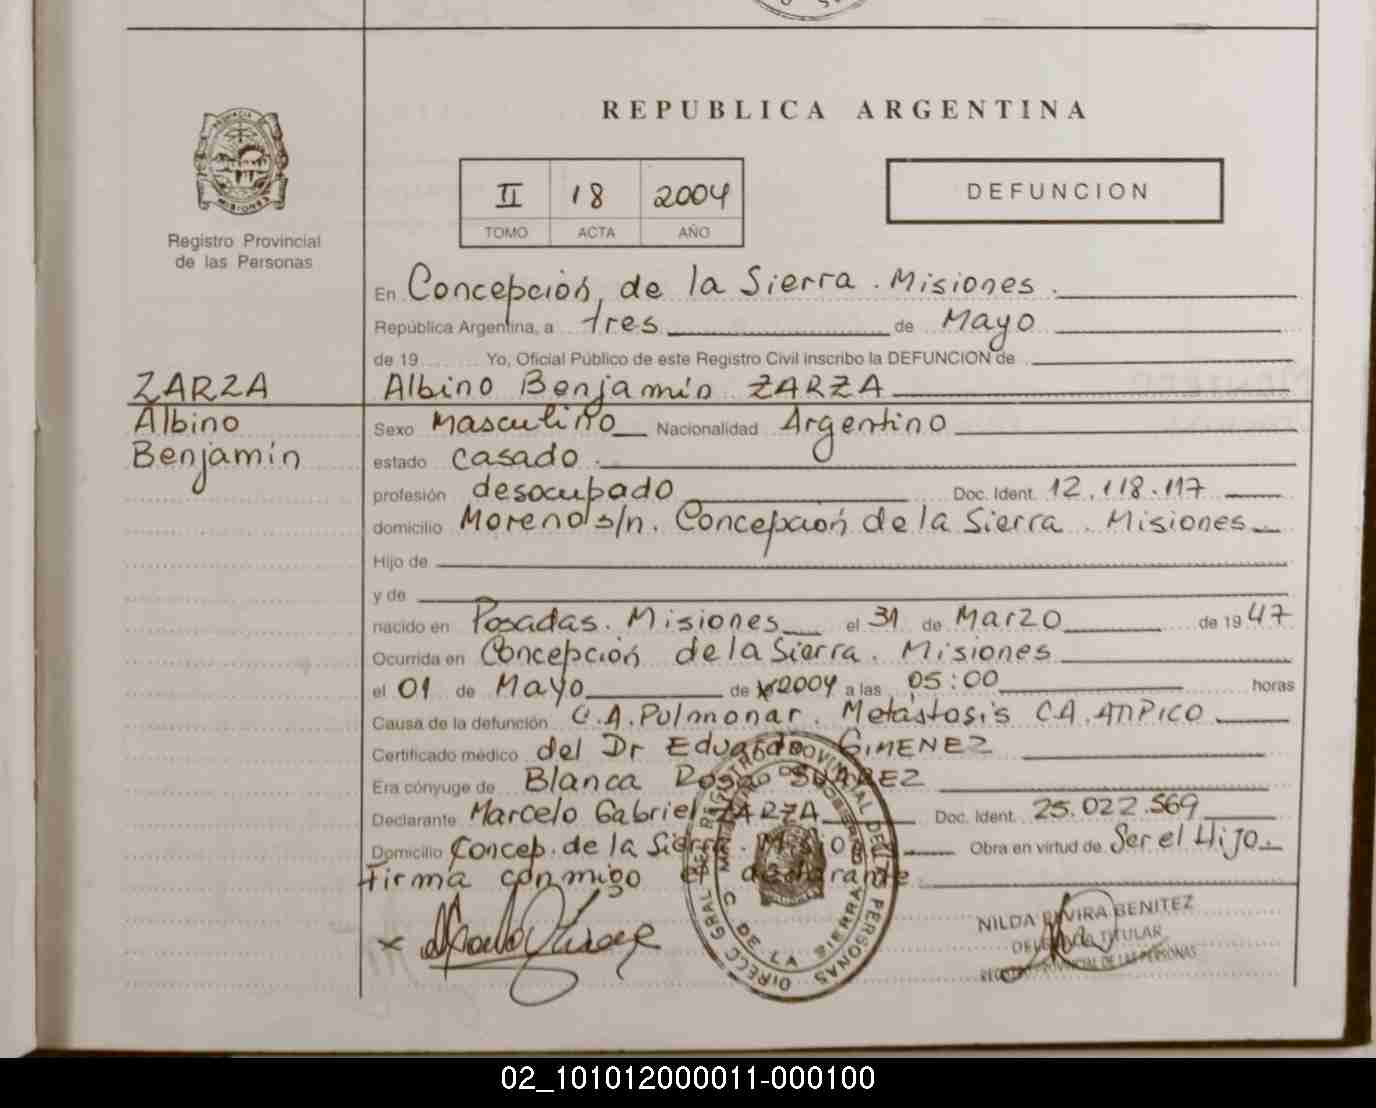 REPUBLICA ARGENTINA
II 18 2004
TOMO ACTA AÑO
DEFUNCION
PROVINCIA DE
MISIONES
Registro Provincial
de las Personas
En Concepción, de la Sierra. Misiones.
República Argentina, a tres de Mayo
de 19 Yo, Oficial Público de este Registro Civil inscribo la DEFUNCION de
ZARZA Albino Benjamín ZARZA
Albino Sexo Masculino Nacionalidad Argentino
Benjamín estado casado.
profesión desocupado Doc. Ident. 12.118.117
domicilio Moreno s/n. Concepción de la Sierra. Misiones
Hijo de
y de
nacido en Posadas. Misiones el 31 de Marzo de 1947
Ocurrida en Concepción de la Sierra. Misiones
el 01 de Mayo de 2004 a las 05:00 horas
Causa de la defunción C.A. Pulmonar. Metástosis CA. ATIPICO
Certificado médico del Dr Eduardo GIMENEZ
Era cónyuge de Blanca Rosa SUAREZ
Declarante Marcelo Gabriel ZARZA Doc. Ident. 25.022.569
Domicilio Concep. de la Sierra. Misiones Obra en virtud de Ser el Hijo.
Firma conmigo el declarante
DIRECC GRAL DEL REGISTRO PROVINCIAL DE PERSONAS
C DE LA SIERRA
NILDA ELVIRA BENITEZ
DELEGADA TITULAR
REGISTRO PROVINCIAL DE LAS PERSONAS
02_101012000011-000100